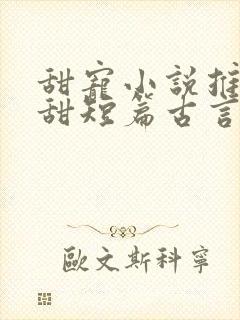 甜寵小説推
甜短篇古言
歐文斯科寧